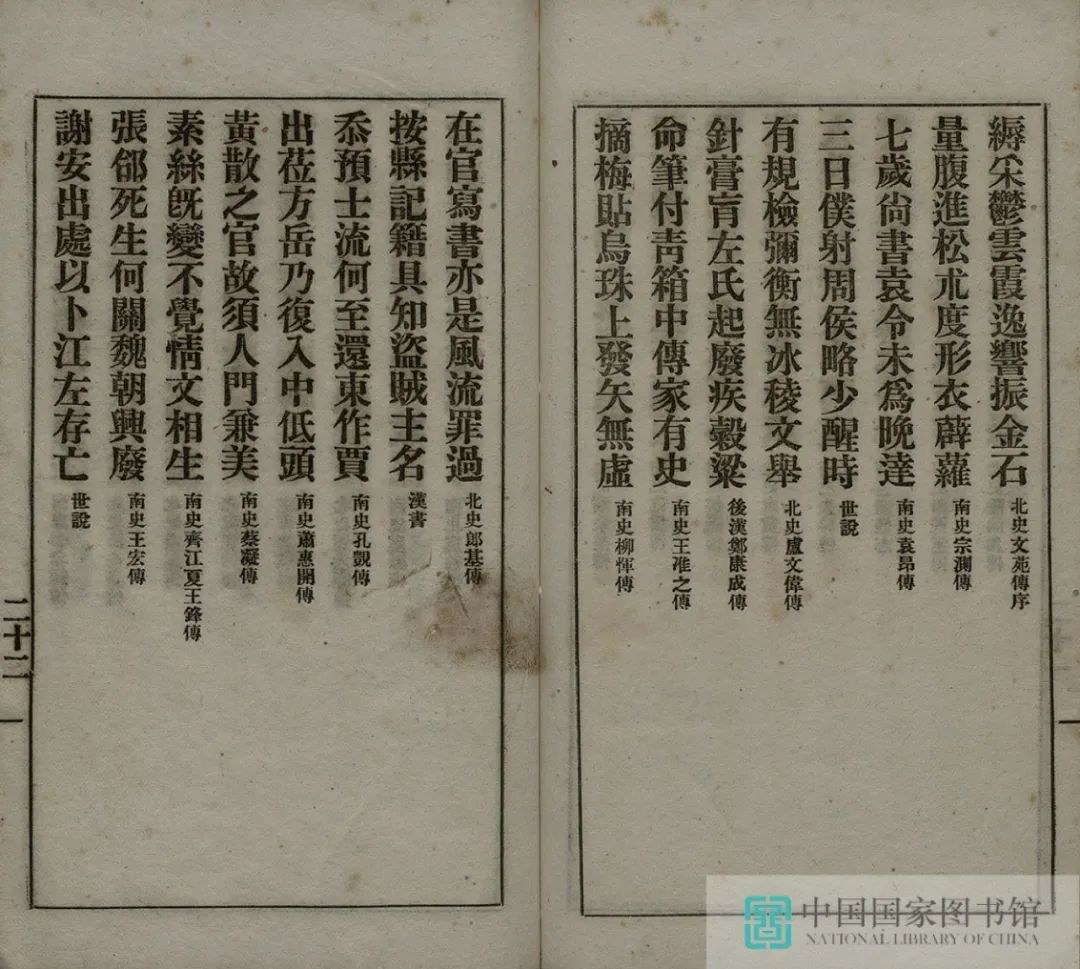 縟采鬱雲霞逸響振金石 北史文苑傳序
量腹進松朮度形衣薜蘿 南史宗測傳
七歲尙書袁令未爲晚達 南史袁昂傳
三日僕射周侯略少醒時 世說
有規檢彌衡無冰稜文舉 北史盧文偉傳
針膏肓左氏起廢疾穀粱 後漢鄭康成傳
命筆付靑箱中傳家有史 南史王准之傳
摘梅貼烏珠上發矢無虛 南史柳惲傳
在官寫書亦是風流罪過 北史郎基傳
按縣記籍具知盜賊主名 漢書
忝預士流何至還東作賈 南史孔覬傳
出莅方岳乃復入中低頭 南史蕭惠開傳
黃散之官故須人門兼美 南史蔡凝傳
素絲旣變不覺情文相生 南史齊江夏王鋒傳
張郃死生何關魏朝興廢 南史王宏傳
謝安出處以卜江左存亡 世說
二十二
中国国家图书馆
NATIONAL LIBRARY OF CHINA